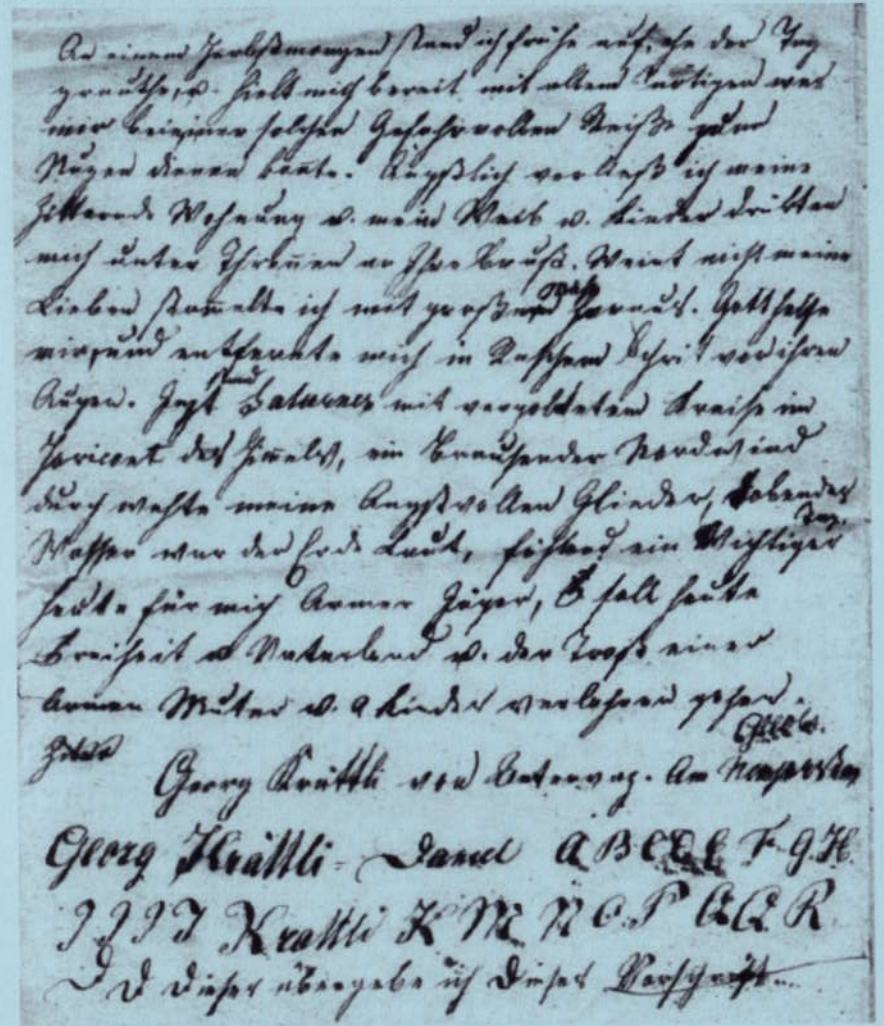 An einem Herbstmorgen stand ich frühe auf, ehe der Tag
grauthe, u. hielt mich bereit mit allem Nötigen was
mir bei einer solchen Gefahrvollen Reiße zum
Nuzen dienen konte. Ängstlich verließ ich meine
Zitternde Wohnung u. mein Weib u. Kinder drükten
mich unter Thrennen an Ihre Brust. Weint nicht meine
Lieben stamelte ich mit großen heraus. Gott helfe
mir, und entfernte mich in Raschem Schrit vor ihren
Augen. Jezt stand Saturnes mit vergoldetem Kreise im
Horicont des Himels, ein Brausender Nordwind
durch wehte meine Angstvollen Glieder, Tobendes
Wasser war der Erde Laut, ein Wichtiger Tag
heute für mich Armer Jäger, soll heute
Freiheit u Vaterland u. der Trost einer
Armen Muter u. 9 Kinder verlohren gehen.
Georg Krättli von Untervaz. Am
Georg Krättli - A B C D E F. G. H.
J J J J Krättli K M N O. P Q Q R
D D Dieses übergebe ich Dieses Vorschrift...